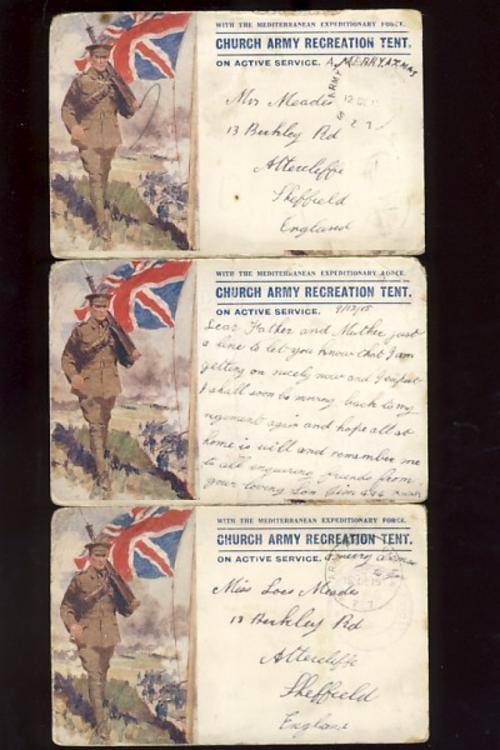 WITH THE MEDITERRANEAN EXPEDITIONARY FORCE.
CHURCH ARMY RECREATION TENT.
ON ACTIVE SERVICE. A MERRY XMAS
Mrs Meades
13 Berkley Rd
Attercliffe
Sheffield
England
WITH THE MEDITERRANEAN EXPEDITIONARY FORCE.
CHURCH ARMY RECREATION TENT.
ON ACTIVE SERVICE. 9/12/15
Dear Father and Mother just
a line to let you know that I am
getting on nicely now and I expect
I shall soon be moving back to my
regiment again and hope all at
home is well and remember me
to all enquiring friends from
your loving Son
WITH THE MEDITERRANEAN EXPEDITIONARY FORCE.
CHURCH ARMY RECREATION TENT.
ON ACTIVE SERVICE. a merry
Miss Meades
13 Berkley Rd
Attercliffe
Sheffield
England